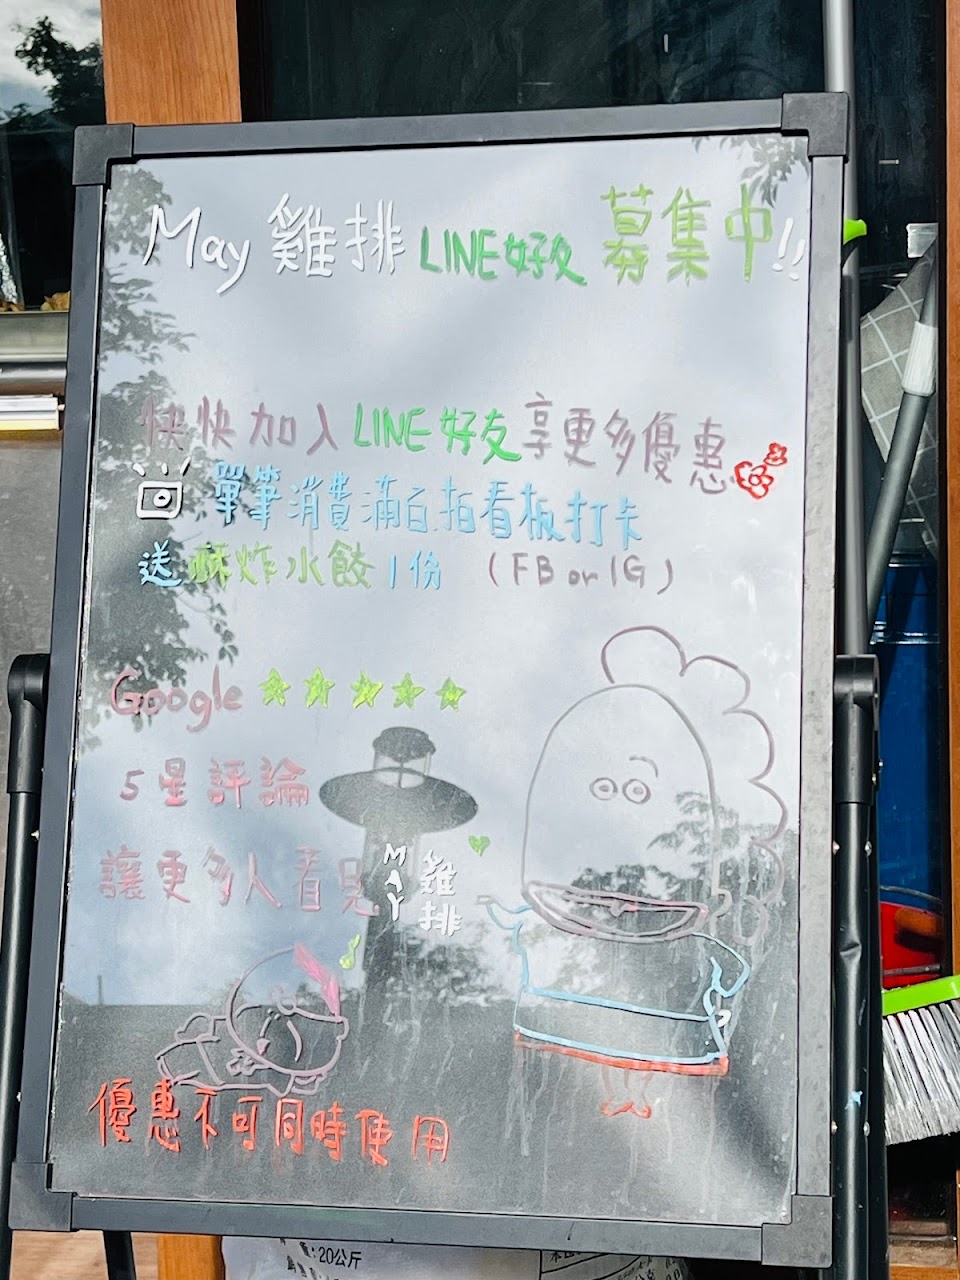 May 雞排 LINE好友 募集中!!
快快加入LINE好友享更多優惠
單筆消費滿百拍看板打卡
送酥炸水餃1份 (FB or IG)
Google
5星評論
讓更多人看見 MAY 雞排
優惠不可同時使用
:20公斤